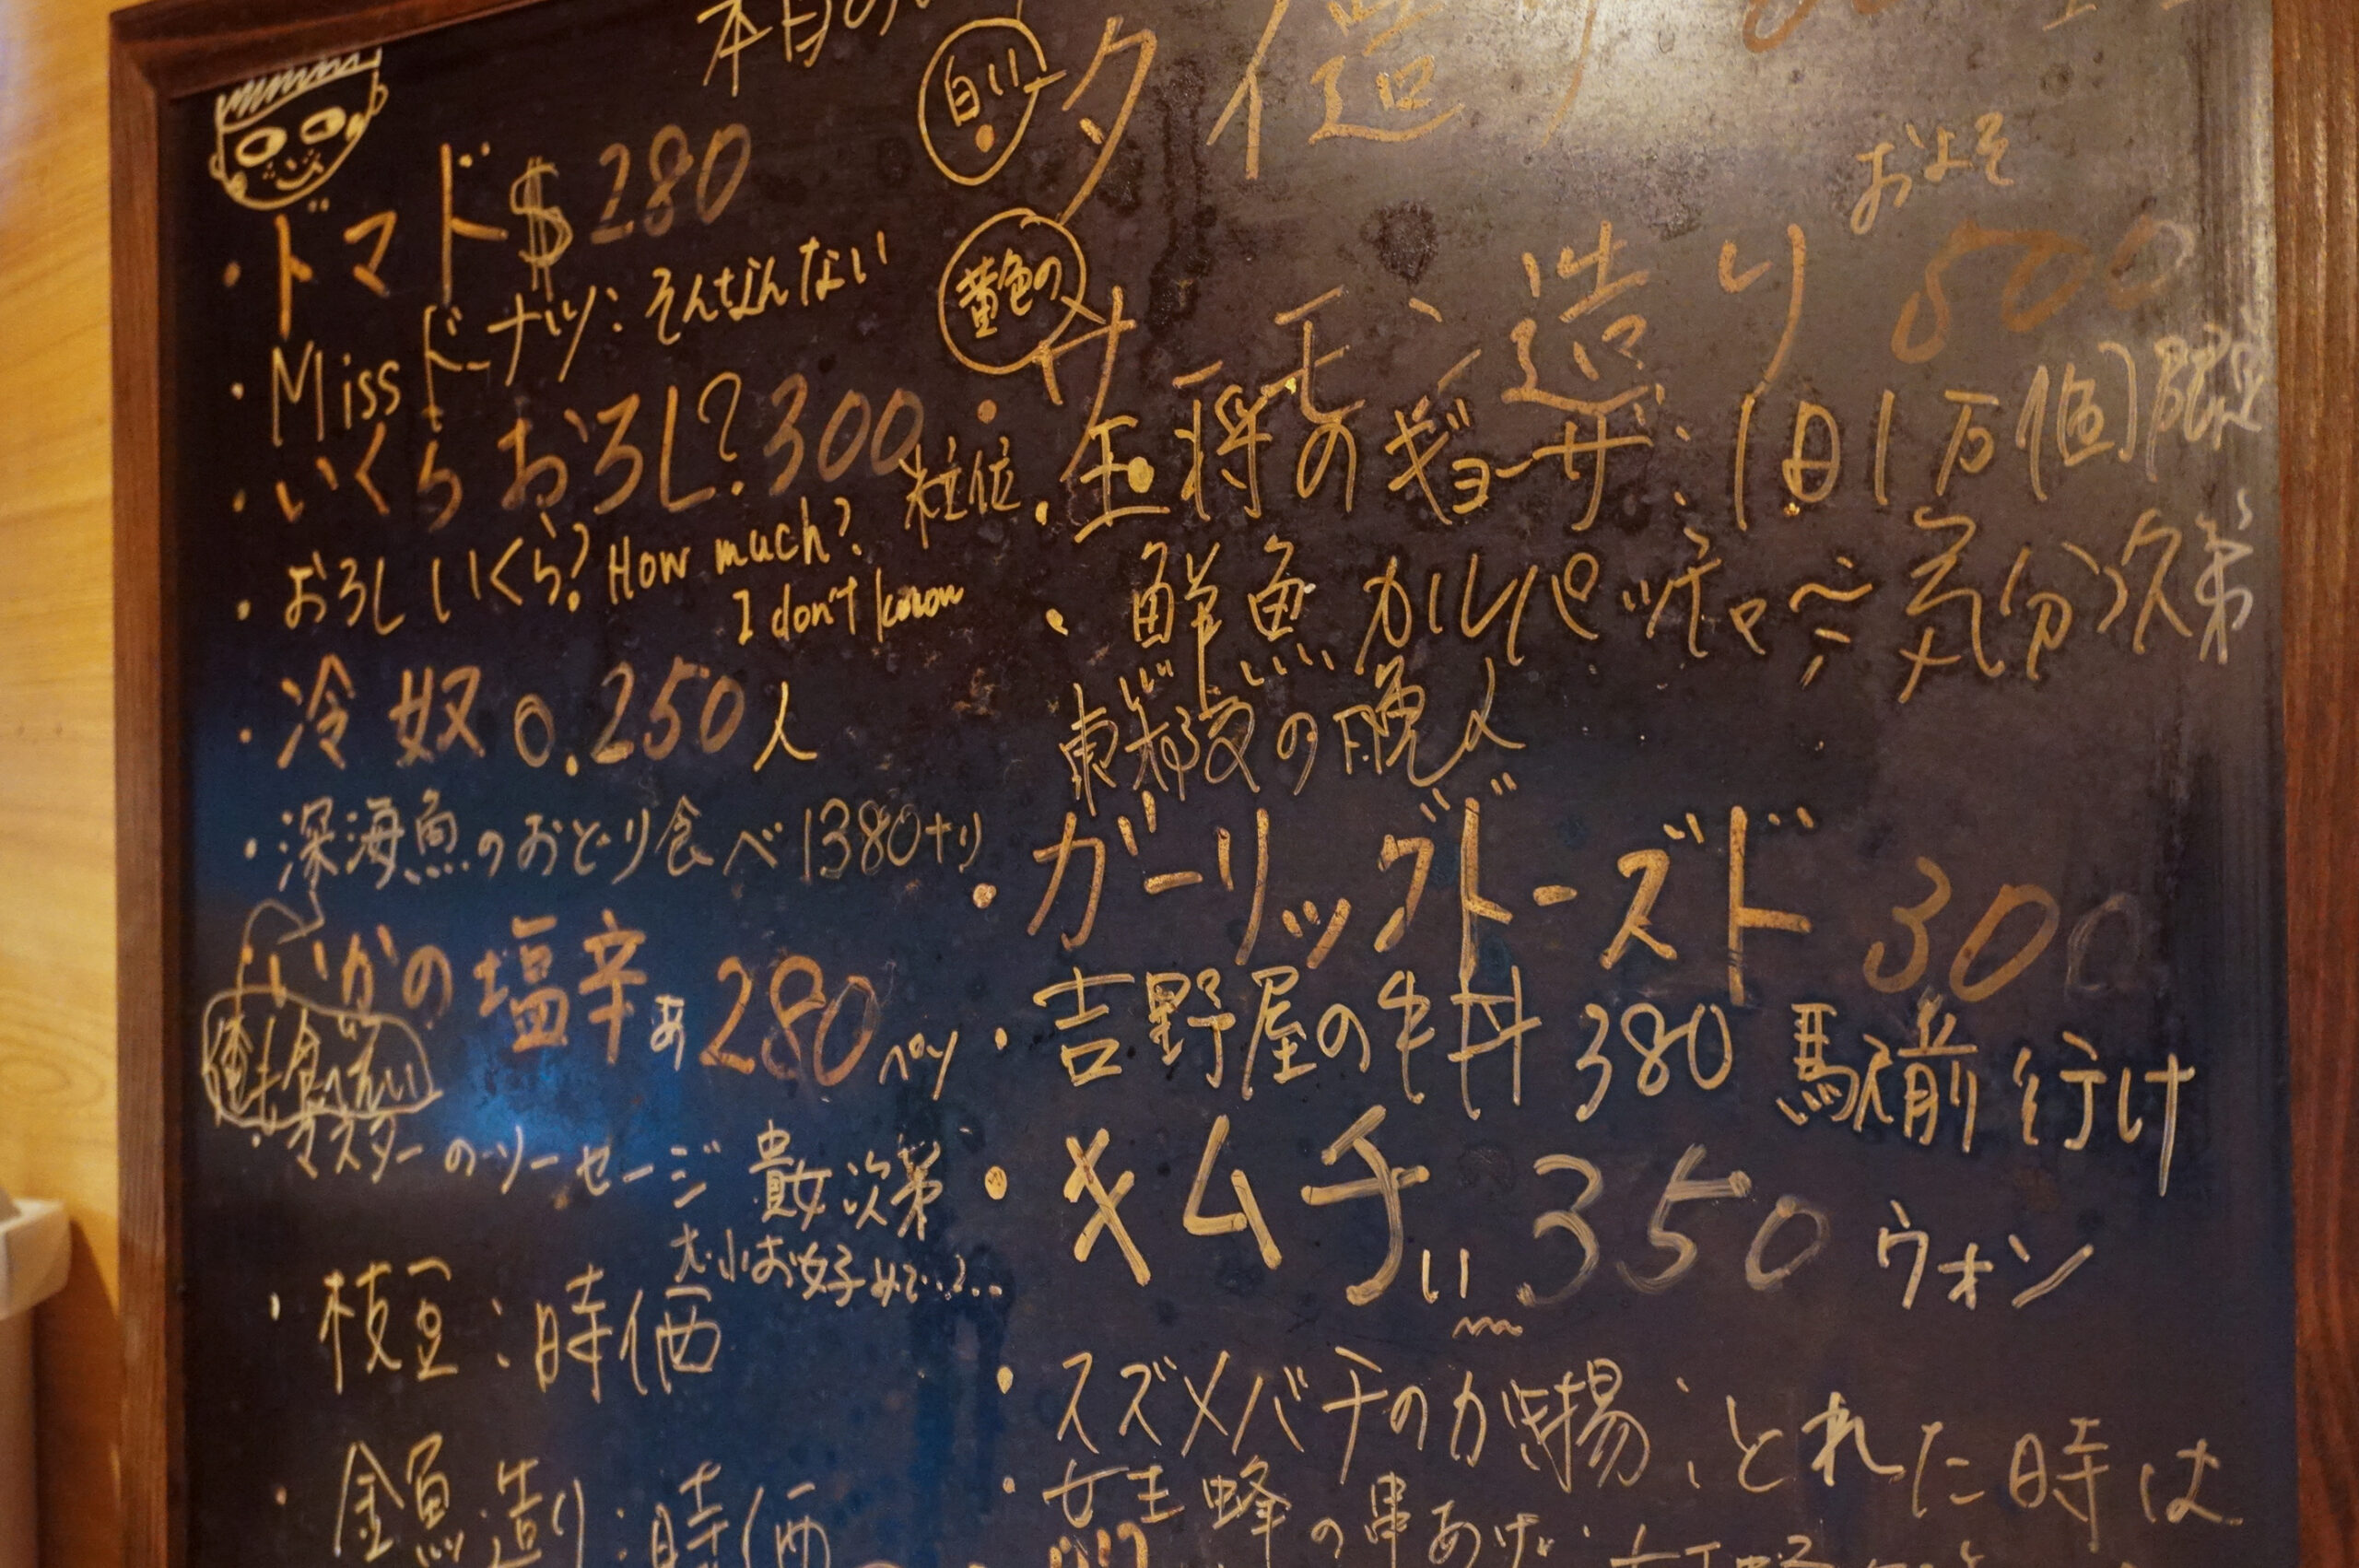 本日の
・ドマド $280
・Miss ドーナツ:そんなんない
・いくらおろし?300粒位
・おろしいくら?How much?
I don't know
・冷奴 0.250人
・深海魚のおどり食べ 1380+り
・いかの塩辛ぁ 280ペソ
俺も食べたい
・マスターのソーセージ 貴女次第
大小お好みで・・・?・・・
・枝豆:時価
・金魚造り:時価
白い
・タイ造り
およそ
黄色の
・サーモン造り 800
・王将のギョーザ:1日1万個限定
・鮮魚カルパッチャ〜ニ 気分次第
・ガーリッグドーズド 300
・吉野屋の牛丼 380 駅前行け
・キムチぃ 350ウォン
・スズメバチのかき揚、とれた時は
・女王蜂の串あげ: